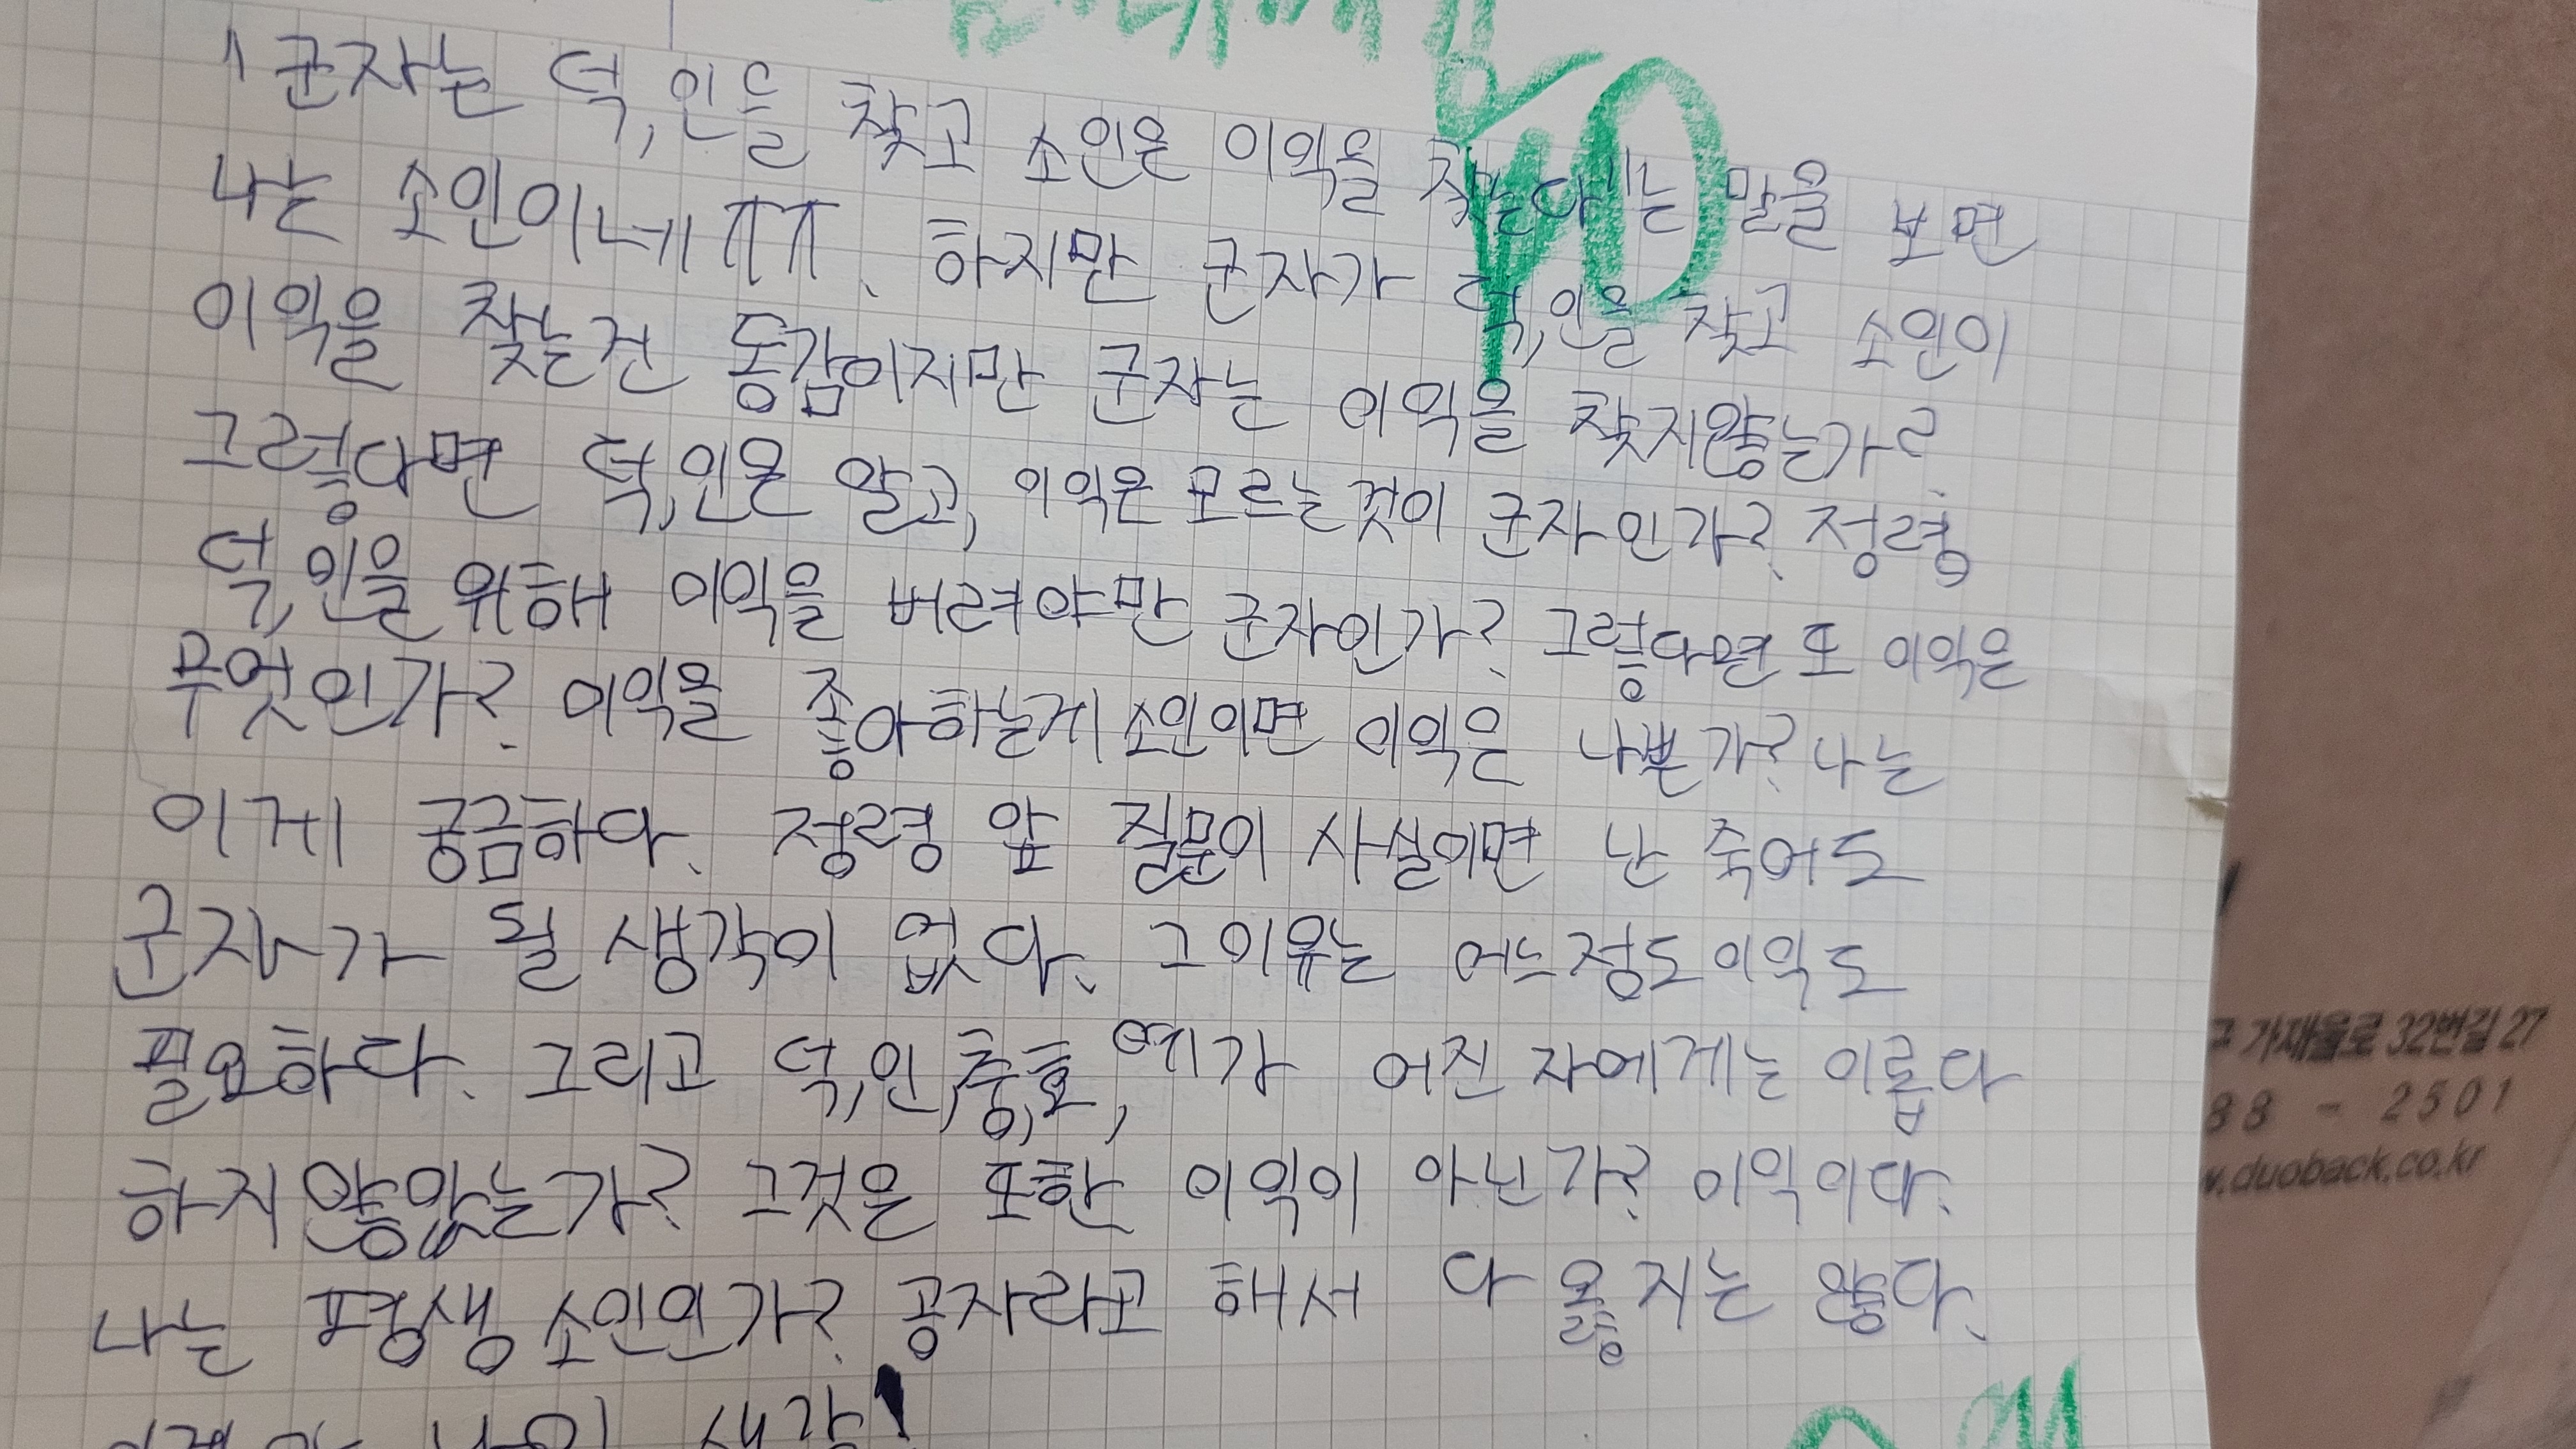 "군자는 덕,인을 찾고 소인은 이익을 찾는다"는 말을 보면
나는 소인이네ㅠㅠ. 하지만 군자가 덕,인을 찾고 소인이
이익을 찾는건 동감이지만 군자는 이익을 찾지않는가?
그렇다면 덕,인은 알고, 이익은 모르는것이 군자인가? 정령
덕,인을 위해 이익을 버려야만 군자인가? 그렇다면 또 이익은
무엇인가? 이익을 좋아하는게 소인이면 이익은 나쁜가? 나는
이게 궁금하다. 정령 앞 질문이 사실이면 난 죽어도
군자가 될 생각이 없다. 그 이유는 어느정도 이익도
필요하다. 그리고 덕,인,충,효,예가 어진 자에게는 이롭다
하지 않았는가? 그것은 또한 이익이 아닌가? 이익이다.
나는 평생 소인인가? 공자라고 해서 다 옳지는 않다.
생각!
가재울로 32번길 27
88 - 2501
.duoback.co.kr